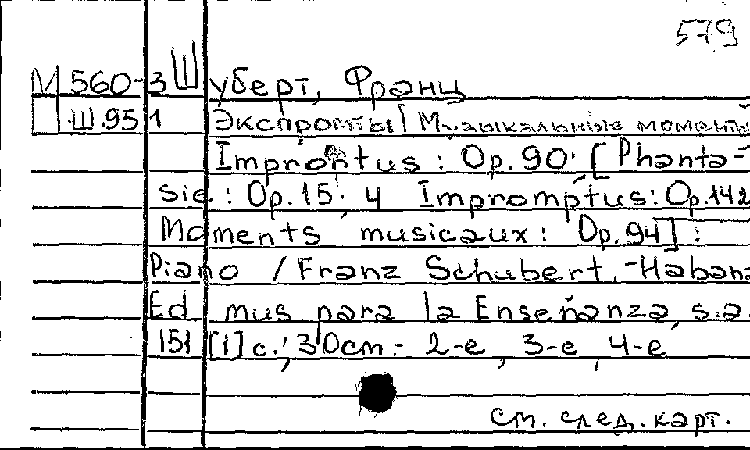 579
М 560-3 Шуберт, Франц
Ш.951 Экспромты / Музыкальные моменты
Imprortus : Op.90. [Phanta-
sie : Op.15; 4 Impromptus: Op.142
Moments musicaux: Op.94] :
Piano / Franz Schubert.-Habana
Ed. mus para la Enseñanza, s.a.
151 [1] c.; 30cm.- 2-e, 3-e, 4-e
см. след. карт.